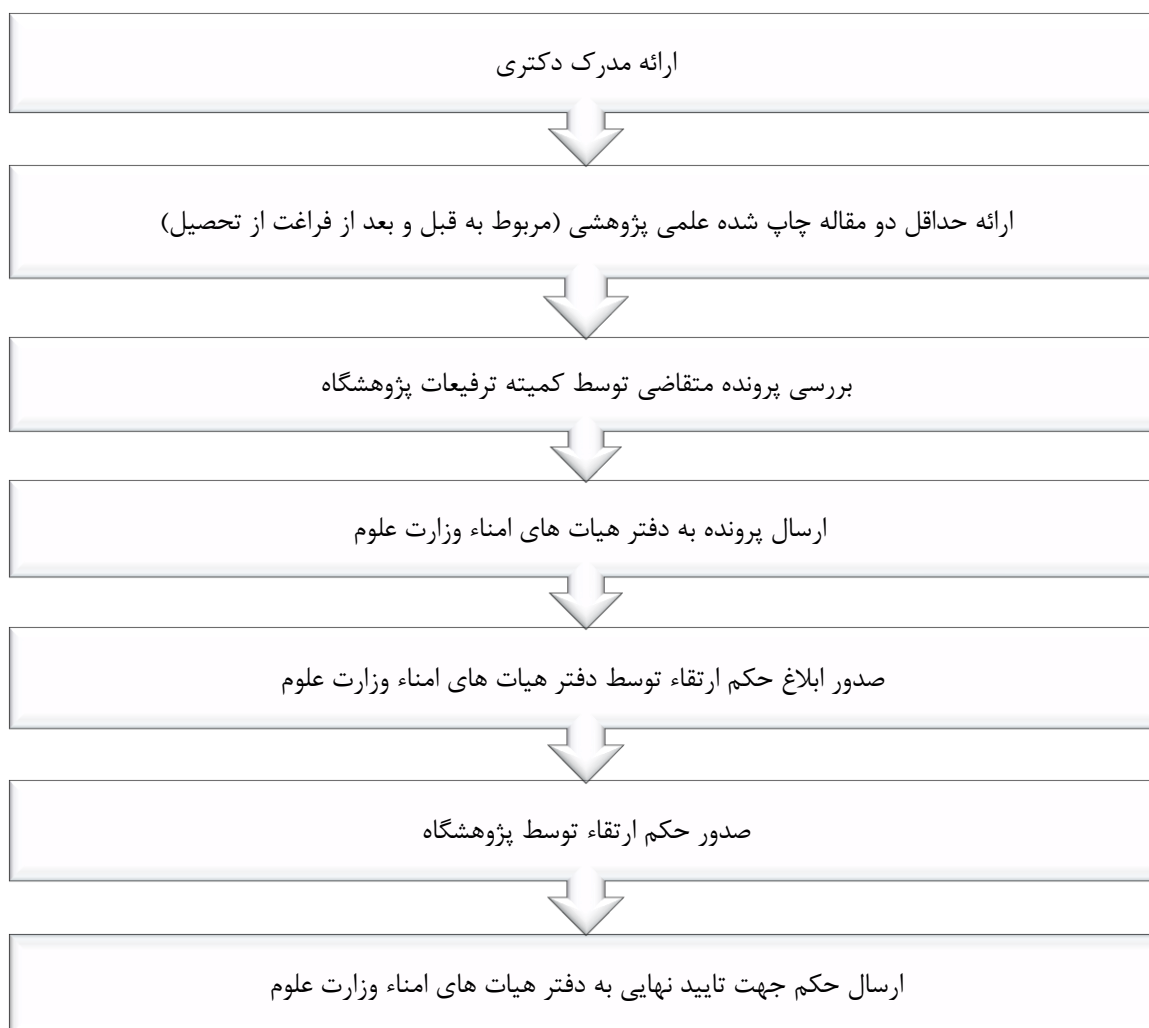 ارائه مدرک دکتری
ارائه حداقل دو مقاله چاپ شده علمی پژوهشی (مربوط به قبل و بعد از فراغت از تحصیل)
بررسی پرونده متقاضی توسط کمیته ترفیعات پژوهشگاه
ارسال پرونده به دفتر هیات های امناء وزارت علوم
صدور ابلاغ حکم ارتقاء توسط دفتر هیات های امناء وزارت علوم
صدور حکم ارتقاء توسط پژوهشگاه
ارسال حکم جهت تایید نهایی به دفتر هیات های امناء وزارت علوم